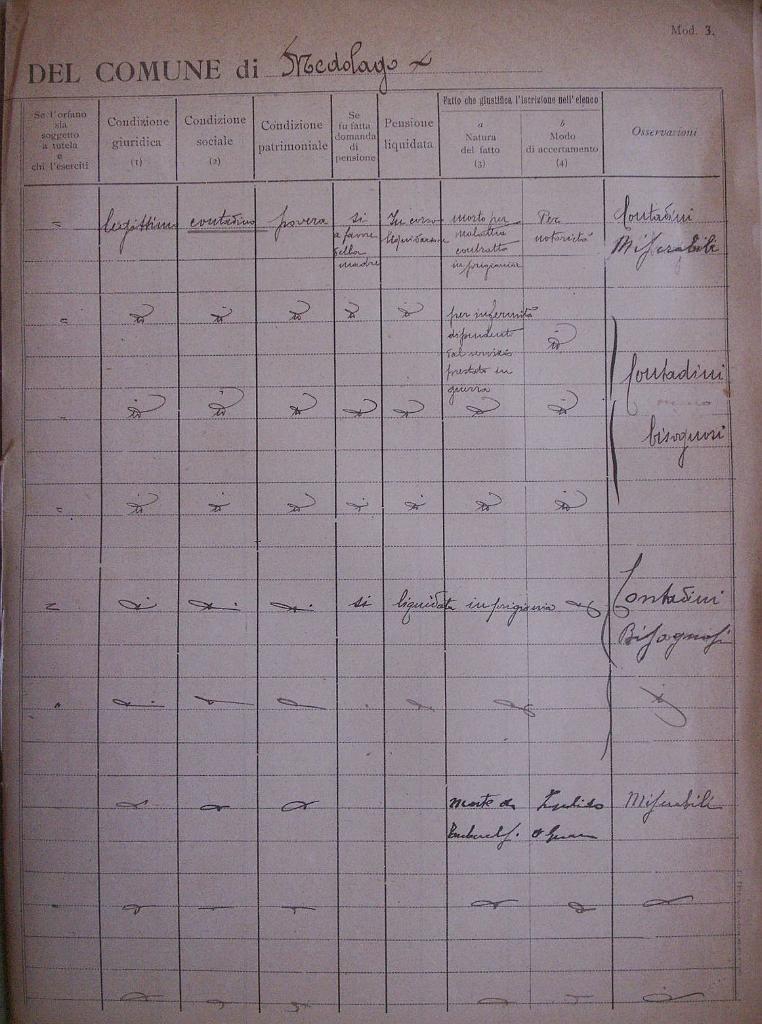 Mod. 3.
DEL COMUNE di Medolago
Se l'orfano
sia
soggetto
a tutela
e
chi l'eserciti
Condizione
giuridica
(1)
Condizione
sociale
(2)
Condizione
patrimoniale
Se
fu fatta
domanda
di
pensione
Pensione
liquidata
Fatto che giustifica l'iscrizione nell'elenco
a
Natura
del fatto
(3)
b
Modo
di accertamento
(4)
Osservazioni
=
legittima
contadina
povera
si
a favore
della
madre
In corso
liquidazione
morto per
malattia
contratta
in prigionia
Per
notorietà
Contadini
Miserabili
=
id
id
id
id
id
per infermità
dipendenti
dal servizio
prestato in
guerra
id
Contadini
bisognosi
id
id
id
id
id
id
id
=
id
id
id
id
id
id
id
=
si
liquidata in prigionia
Contadini
Bisognosi
Morte da
Miserabili